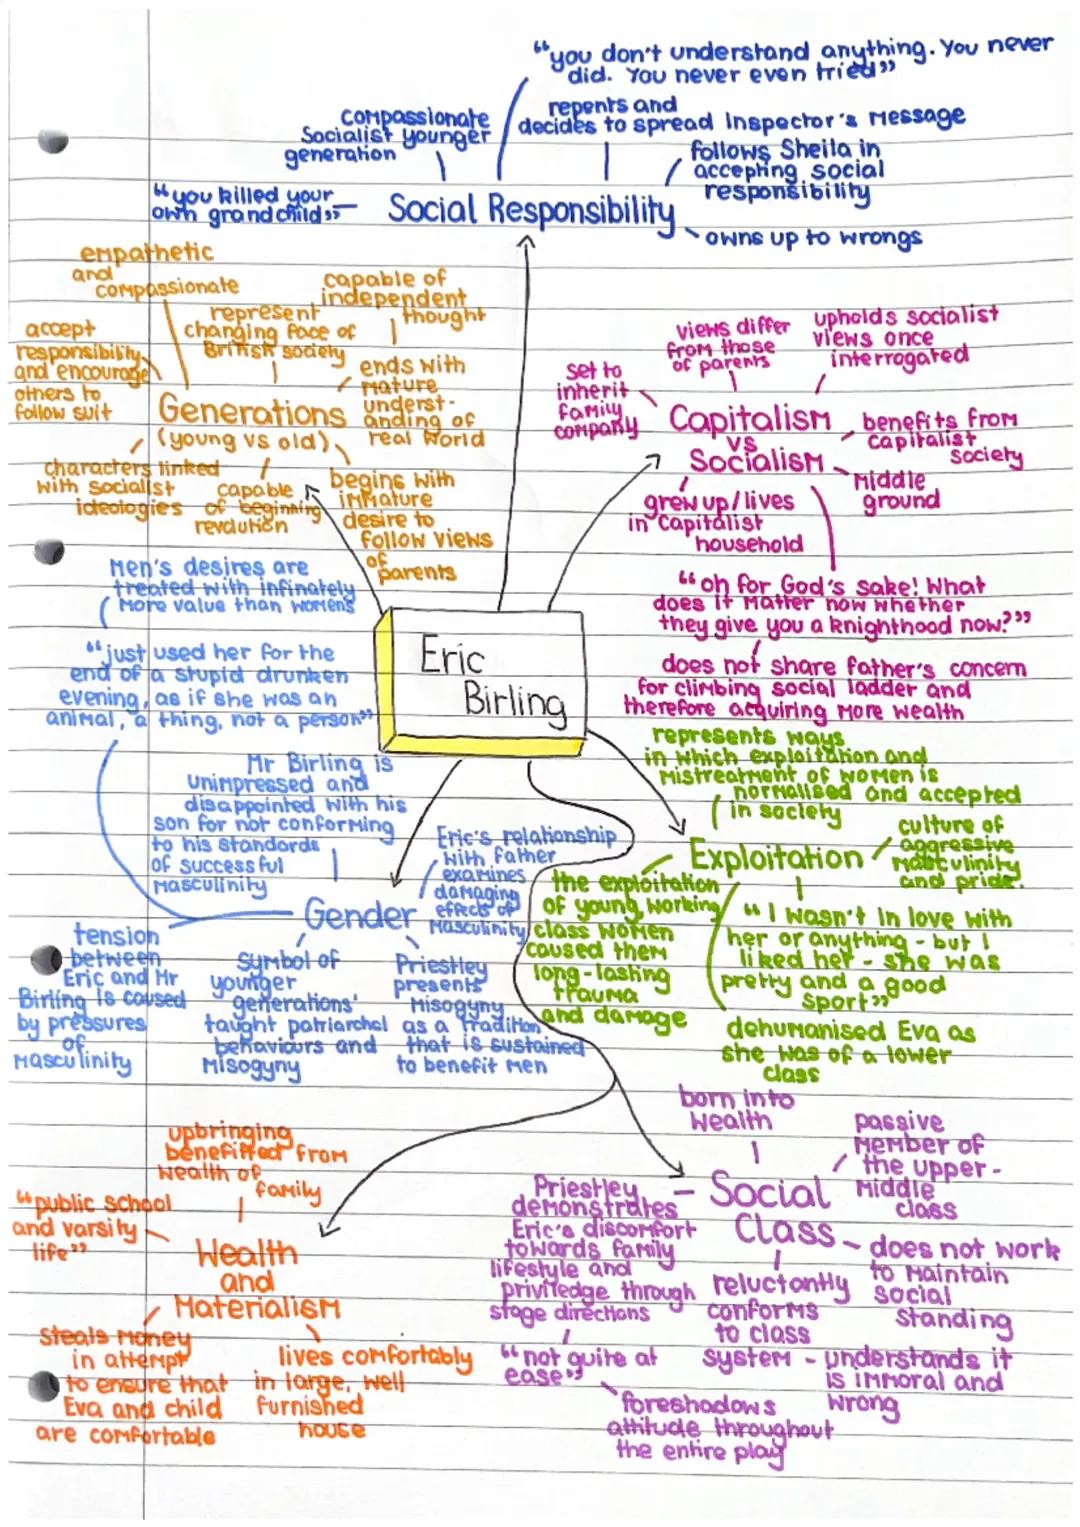 “you don't understand anything. You never
did. You never even tried”
repents and
decides to spread Inspector's Message
compassionate
Socialist younger
generation
follows Sheila in
accepting social
responsibility
“you killed your
own grandchild”
Social Responsibility
owns up to wrongs
empathetic
and
compassionate
represent
changing face of
British society
capable of
independent
thought
accept
responsibility
and encourage
others to
follow suit
ends with
mature
underst-
anding of
real world
Generations
(young vs old)
characters linked
with socialist
ideologies
capable
of beginning
revolution
begins with
immature
desire to
follow views
of
parents
set to
inherit
family
company
views differ
from those
of parents
upholds socialist
views once
interrogated
Capitalism
vs
Socialism
benefits from
capitalist
society
Middle
ground
grew up/lives
in Capitalist
household
“oh for God's sake! What
does it matter now whether
they give you a knighthood now?”
does not share father's concern
for climbing social ladder and
therefore acquiring more wealth
Men's desires are
treated with infinately
more value than womens
“just used her for the
end of a stupid drunken
evening, as if she was an
animal, a thing, not a person”
Eric
Birling
Mr Birling is
unimpressed and
disappointed with his
son for not conforming
to his standards
of successful
masculinity
Eric's relationship
with father
examines
damaging
effects of
masculinity
Gender
tension
between
Eric and Mr
Birling is caused
by pressures
of
masculinity
symbol of
younger
generations'
taught patriarchal
behaviours and
misogyny
Priestley
presents
misogyny
as a tradition
that is sustained
to benefit men
represents ways
in which exploitation and
mistreatment of women is
normalised and accepted
in society
Exploitation
culture of
aggressive
masculinity
and pride.
the exploitation
of young, working
class women
caused them
long-lasting
trauma
and damage
“I wasn't in love with
her or anything - but I
liked her - she was
pretty and a good
sport”
dehumanised Eva as
she was of a lower
class
upbringing
benefitted from
wealth of
family
“public school
and varsity
life”
Wealth
and
Materialism
steals money
in attempt
to ensure that
Eva and child
are comfortable
lives comfortably
in large, well
furnished
house
born into
wealth
passive
member of
the upper-
middle
class
Social
Class
Priestley
demonstrates
Eric's discomfort
towards family
lifestyle and
priviledge through
stage directions
“not quite at
ease”
foreshadows
attitude throughout
the entire play
reluctantly
conforms
to class
system - understands it
is immoral and
wrong
does not work
to maintain
social
standing